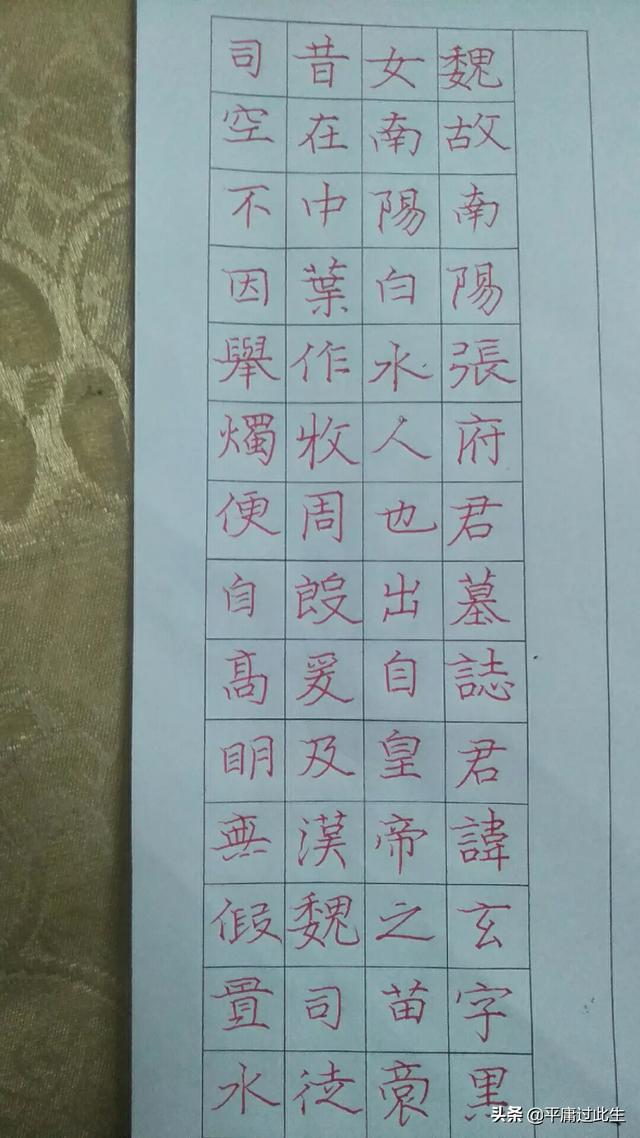 魏故南陽張府君墓誌君諱玄字黑
女南陽白水人也出自皇帝之苗裔
昔在中葉作牧周殷爰及漢魏司徒
司空不因舉燭便自高明無假置水
头条 @平庸过此生